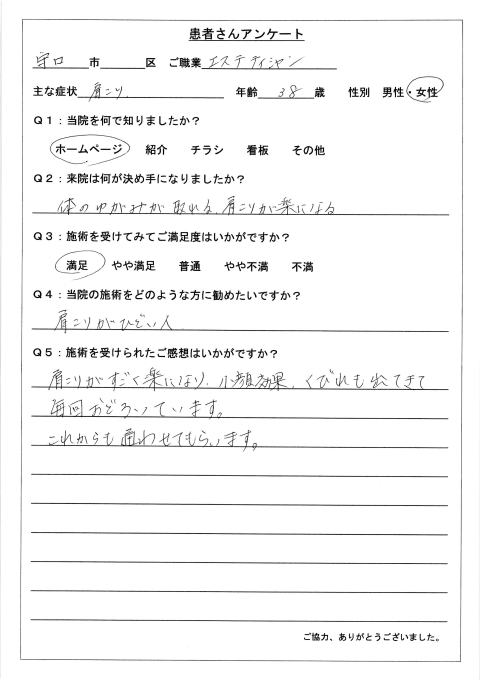 患者さんアンケート
守口市 区 ご職業 エステティシャン
主な症状 肩こり. 年齢 38 歳 性別 男性・女性
Q1：当院を何で知りましたか？
ホームページ 紹介 チラシ 看板 その他
Q2：来院は何が決め手になりましたか？
体のゆがみが取れる、肩こりが楽になる
Q3：施術を受けてみてご満足度はいかがですか？
満足 やや満足 普通 やや不満 不満
Q4：当院の施術をどのような方に勧めたいですか？
肩こりがひどい人
Q5：施術を受けられたご感想はいかがですか？
肩こりがすごく楽になり、小顔効果、くびれも出てきて
毎回おどろいています。
これからも通わせてもらいます。
ご協力、ありがとうございました。